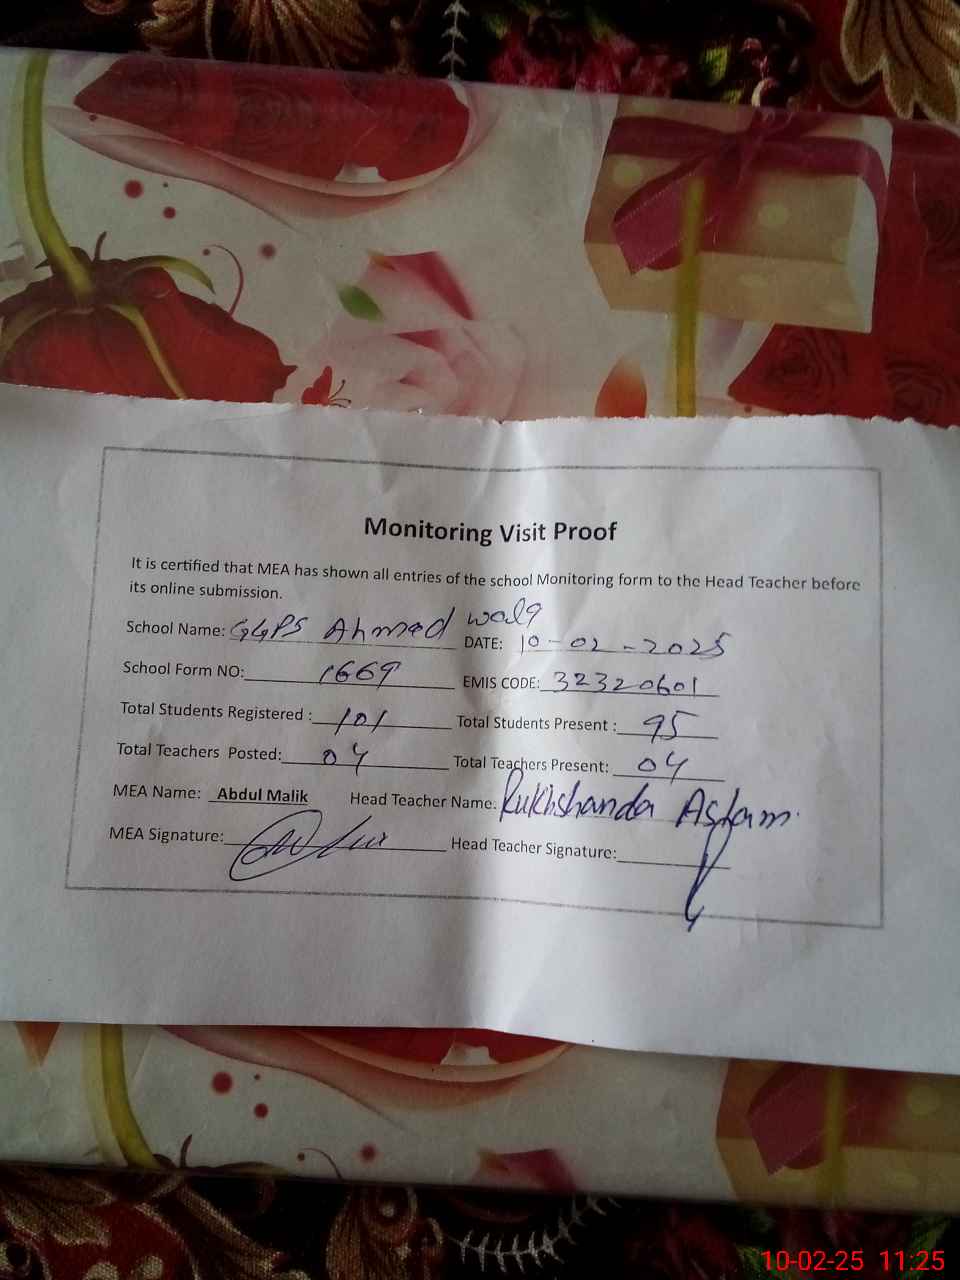 Monitoring Visit Proof
It is certified that MEA has shown all entries of the school Monitoring form to the Head Teacher before
its online submission.
School Name: GGPS Ahmad wala DATE: 10-02-2025
School Form NO: 1669 EMIS CODE: 32320601
Total Students Registered : 101 Total Students Present : 95
Total Teachers Posted: 04 Total Teachers Present: 04
MEA Name: Abdul Malik Head Teacher Name: Rukhshanda Aslam
MEA Signature: Head Teacher Signature:
10-02-25 11:25